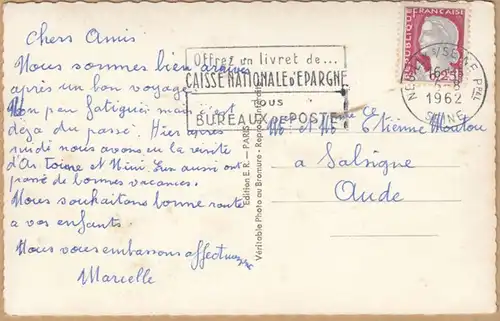 Chers Amis
Nous sommes bien arrivés
après un bon voyage
un peu fatiguée mais c'est
déja du passé. Hier après
midi nous avons eu la visite
d'An toine et Nini. Eux aussi ont
passé de bonnes vacances.
Nous souhaitons bonne route
a vos enfants.
Nous vous embrassons affect
Marcelle
Offrez un livret de...
CAISSE NATIONALE D'EPARGNE
TOUS
BUREAUX DE POSTE
REPUBLIQUE FRANÇAISE
S/SEINE PPAL
1962
SEINE
Mr et Mme Etienne Moutou
a Salsigne
Aude
Edition E. R. — PARIS
Véritable Photo au Bromure - Reproduction